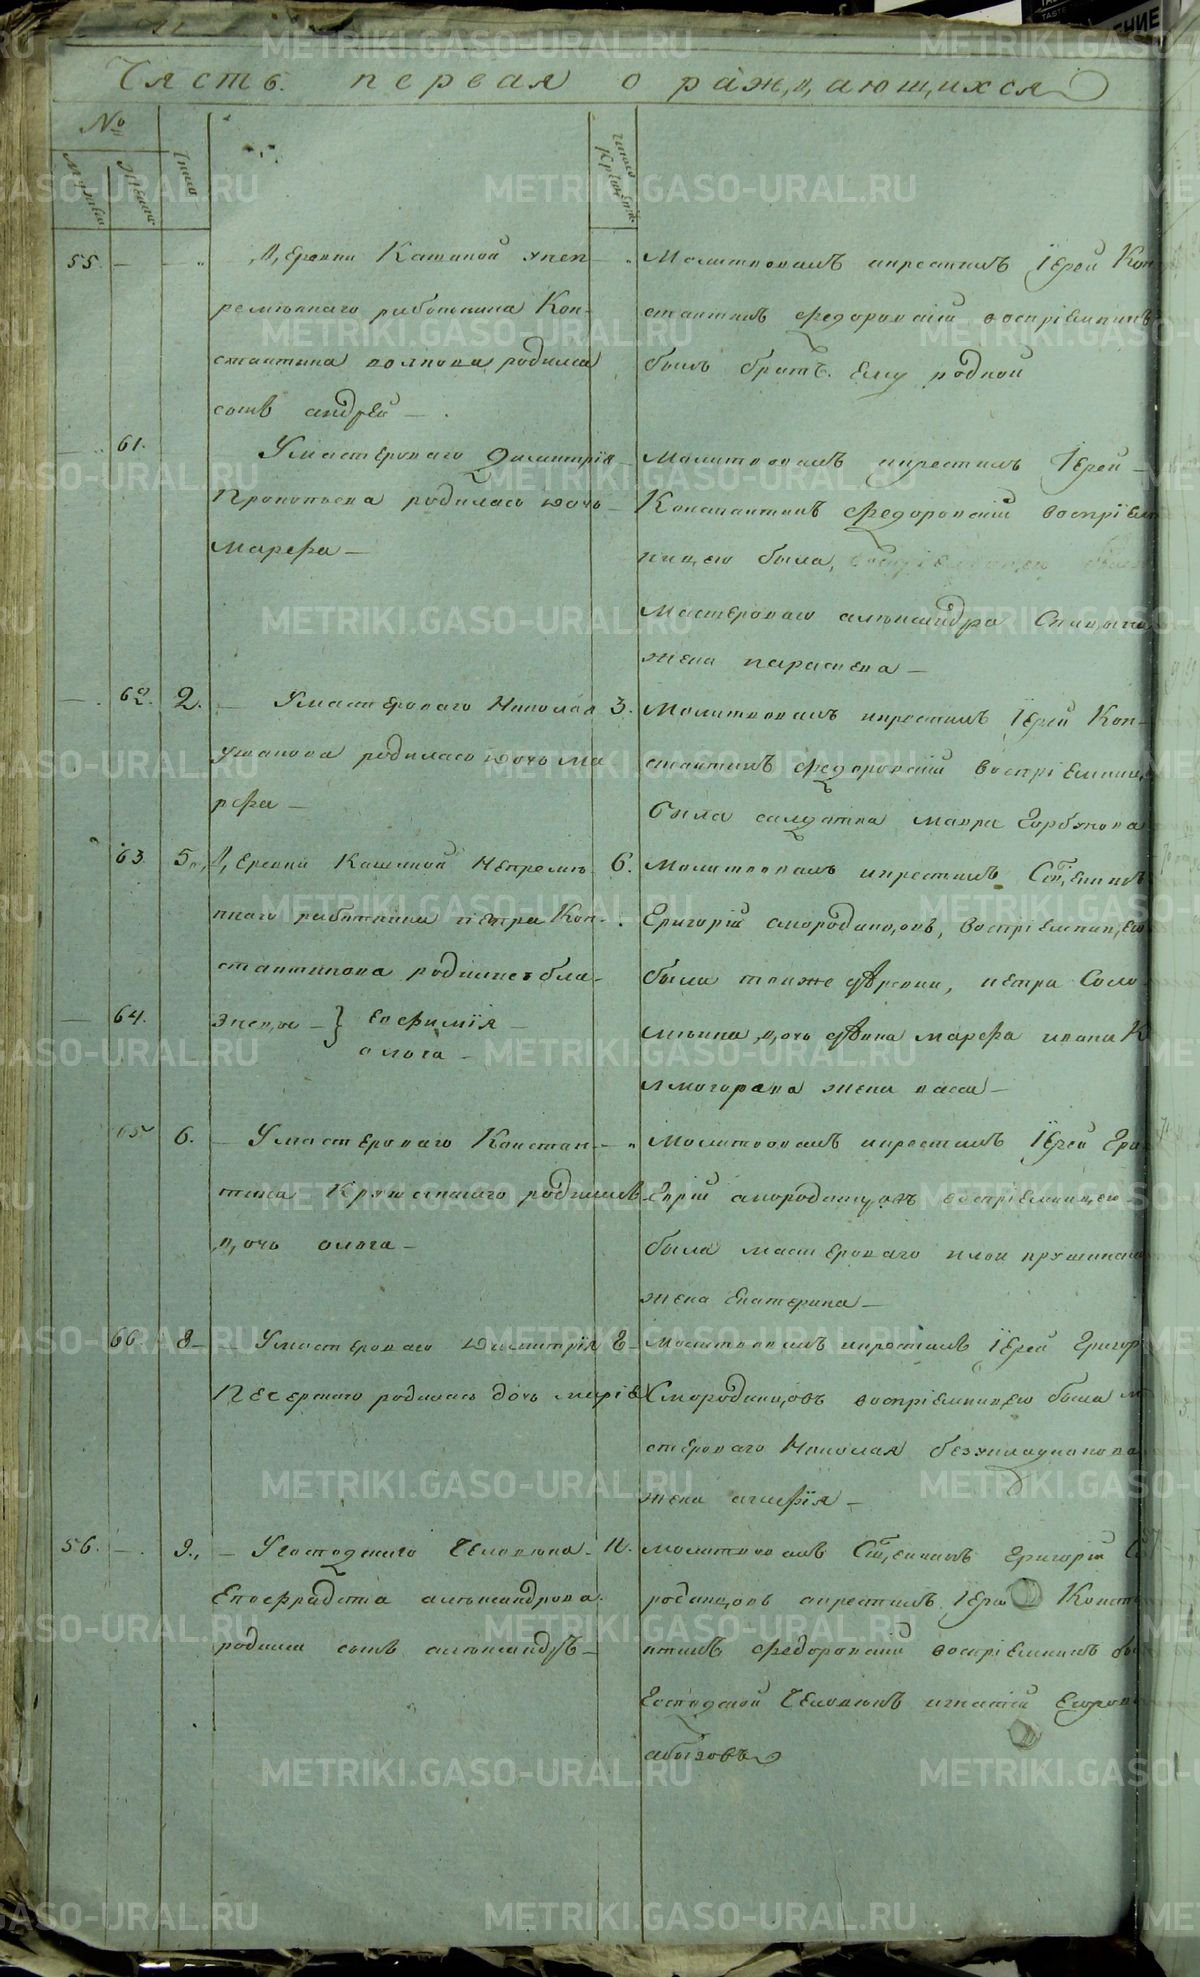 Часть первая о раждающихся
№
Мужеск
Женска
Число
Число Крещенія
55. Деревни Кашиной унеп
ремѣннаго работника Кон-
стантина волкова родился
сынъ андрей
Молитвовалъ икрестилъ Іерей Кон
стантинъ Федоровскій воспріемникъ
былъ братъ ему родной
61. Умастероваго Димитрія
Прокопьева родилась дочь
Марфа
Молитвовалъ икрестилъ Іерей
Константинъ Федоровскій воспріем
ницею была,
Мастероваго александра
жена параскева
62. 2. Умастероваго Николая
Ушакова родилась дочь Ма
рфа
3. Молитвовалъ икрестилъ Іерей Кон-
стантинъ Федоровскій воспріемниц
была салдатка мавра Горбунова
63. 5. Деревни Кашиной Непремѣ
ннаго работника петра Кон-
стантинова родились бла-
64. знецы } Евфимія
олга
6. Молитвовалъ икрестилъ Свщенникъ
Григорій смородинцовъ, воспріемницею
была тоиже Деревни, петра Соло
мѣина дочь Девка марфа ивана К
жена васса
65 6. Умастероваго Констан-
тина Кружепкаго родилась
дочь олга
Молитвовалъ икрестилъ Іерей Гри
Горій смородинцовъ воспріемницею
была мастероваго
жена Екатерина
66 8 Умастероваго Димитрія
Печерскаго родилась дочь марія
8 Молитвовалъ икрестилъ Іерей Григор
Смородинцовъ воспріемницею была м
стероваго Николая безукладникова
жена агафія
56. 9. Угосподскаго Человека
Епафрадита александрова
родился сынъ александръ
11. молитвовалъ Свщенникъ Григорій С
родинцовъ икрестилъ Іерей Конст
нтинъ Федоровскій воспріемникъ бы
Господской Человекъ игнатій Егоров
абызовъ